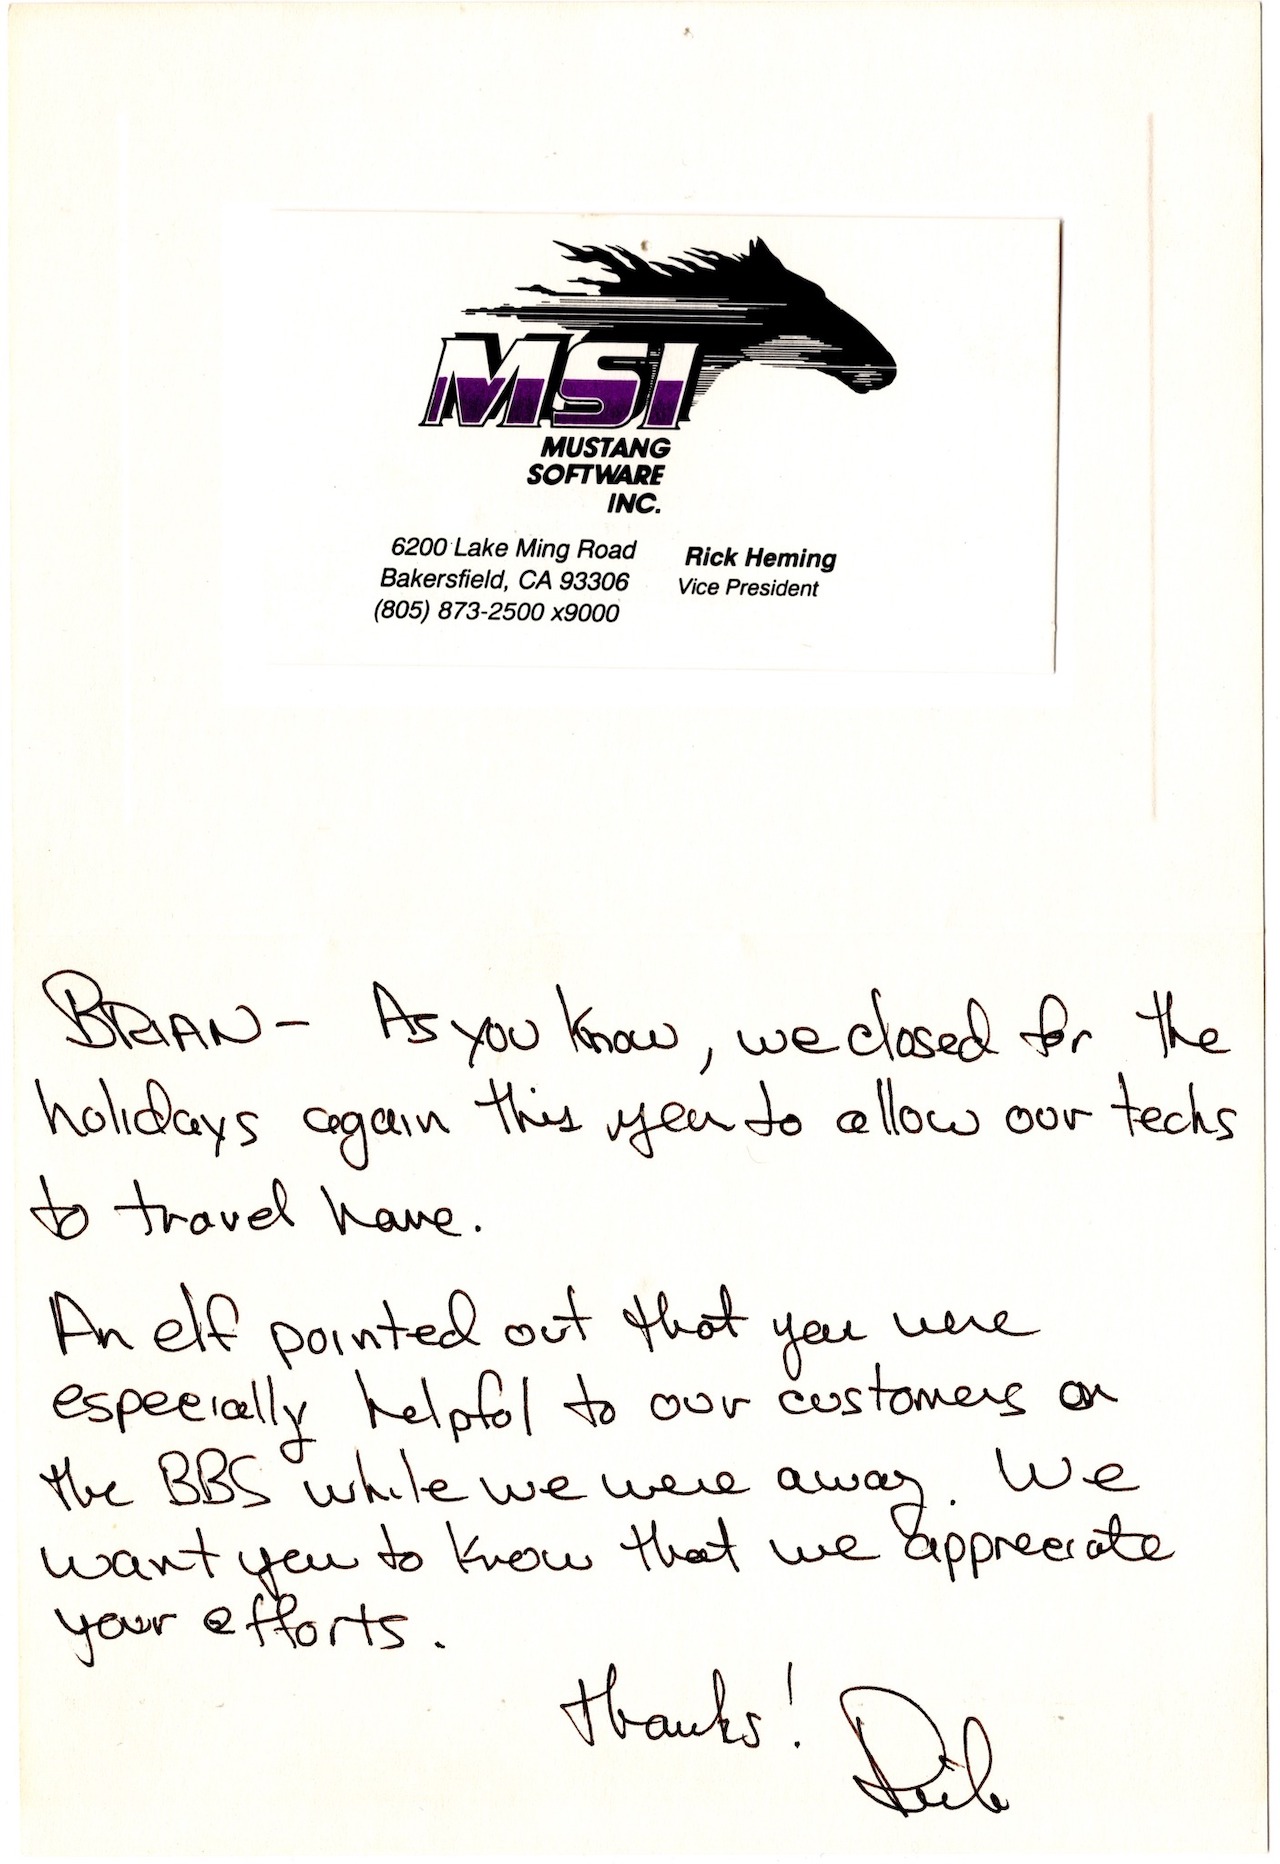 MSI
MUSTANG
SOFTWARE
INC.
6200 Lake Ming Road
Bakersfield, CA 93306
(805) 873-2500 x9000
Rick Heming
Vice President
BRIAN - As you know, we closed for the
holidays again this year to allow our techs
to travel home.
An elf pointed out that you were
especially helpful to our customers on
the BBS while we were away. We
want you to know that we appreciate
your efforts.
Thanks!
Rick